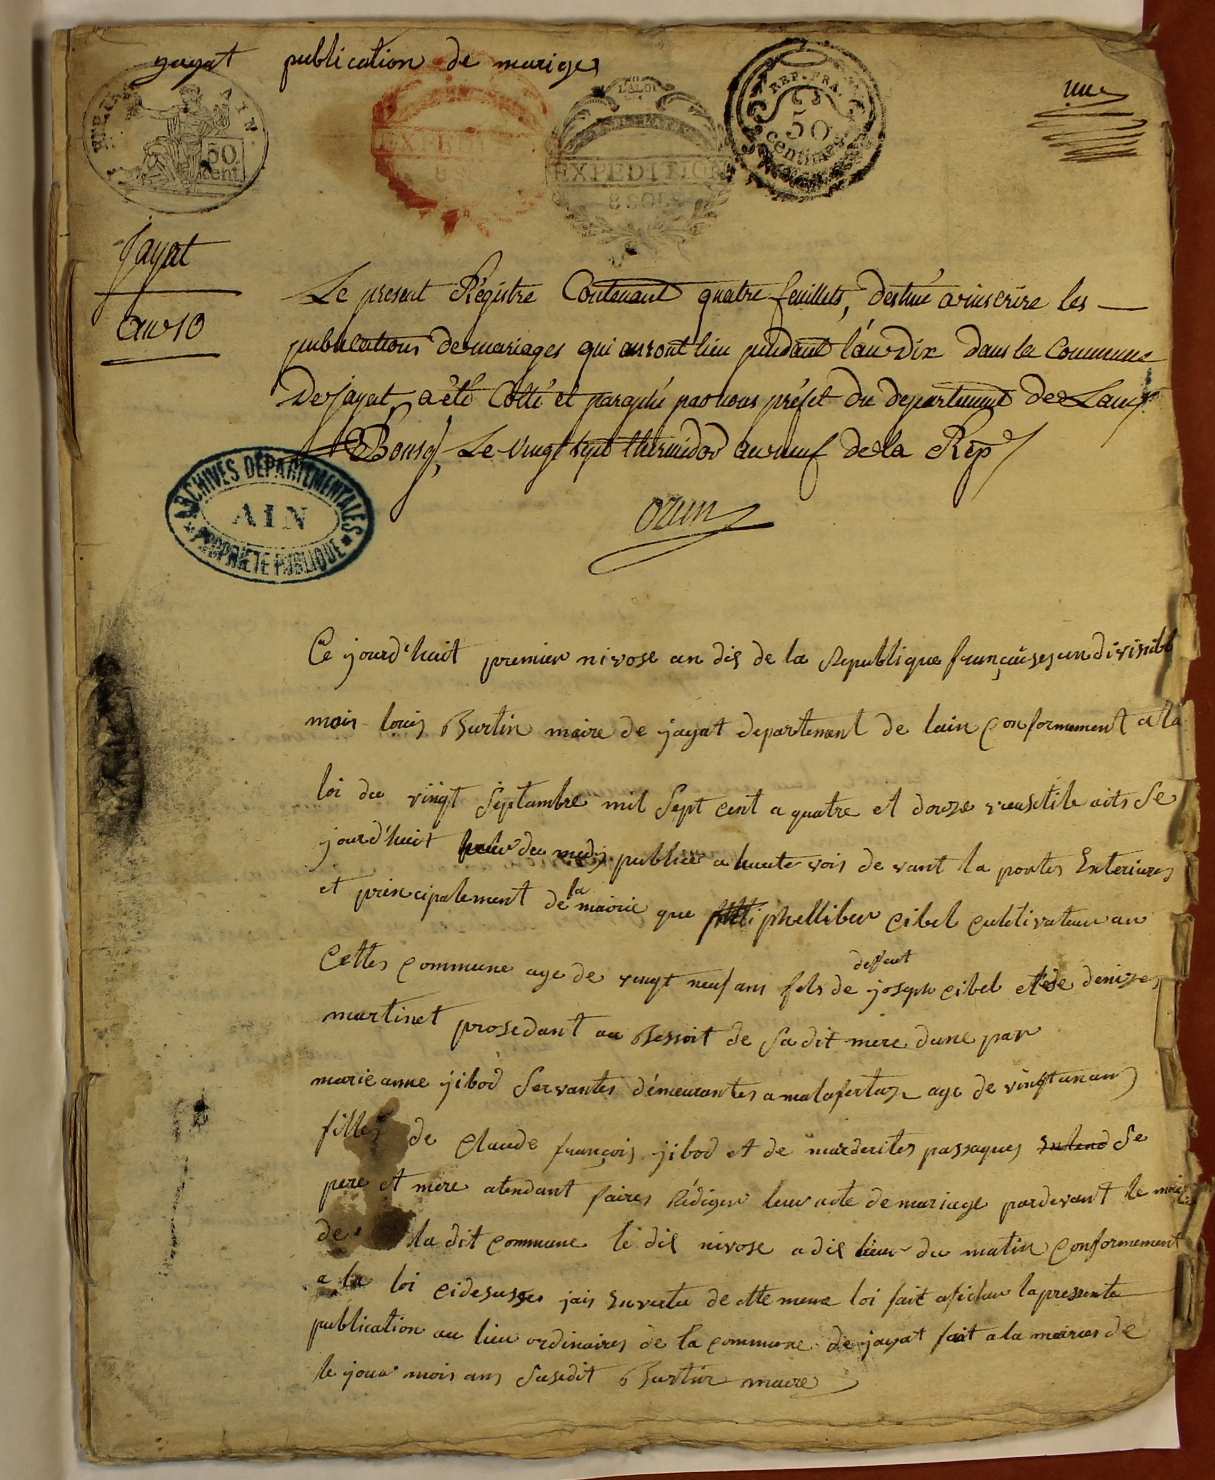 jayat publication de mariages
une
50
cent
L'ALOI
REP. FRA.
50
centimes
EXPEDITION
EXPEDITION
8 SOLS
Jayat
an 10
Le present Régistre Contenant quatre feuillets, destiné a inscrire les
publications de mariages qui auront lieu pendant l'an dix dans la Commune
De jayat a été Cotté et paraphé par nous préfet du departement de Lain
A Bourg, Le vingt sept thermidor an neuf de la Rép
ozun
ARCHIVES DEPARTEMENTALES
AIN
PROPRIETE PUBLIQUE
Ce jourd'huit premier nivose an dis de la Republique françaises un divisible
mois louis Burtin maire de jayat departemant de lain conformement a la
loi du vingt Septambre mil Sept cent a quatre et douze Se
jourd'huit du publier a haute vois de vant la portes Exterieures
et principalement de la mairie que phelliber cibel cultivateur an
Cettes commune age de vingt neuf ans fils de defunt joseph cibel et de denize
martinet prosedant au de Sa dit mere dune par
marie anne jibod Servantes démeurantes a malafertaz age de vingt un an
filles de Claude françois jibod et de marderites passaques Se
pere et mere atendant faires Rédiger leur acte de mariage pardevant le
de la dit commune le dis nivose a dis heur du matin conformement
a la loi cidesuses jais Enverta de cette meme loi fait aficher la pressente
publication au lieu ordinaires de la commune de jayat fait a la mairies de
le jour mois ans Susedit Burtin maire